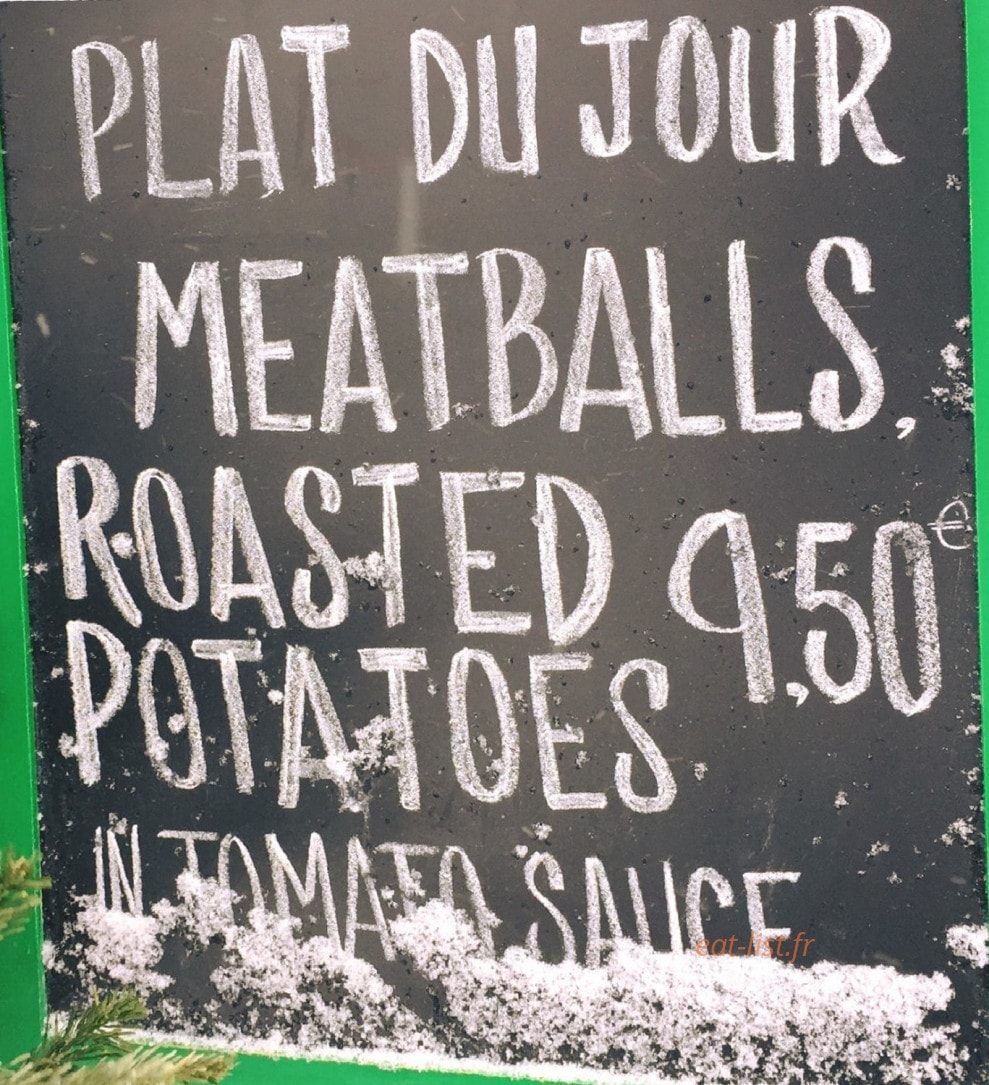 PLAT DU JOUR
MEATBALLS,
ROASTED
9,50€
POTATOES
IN TOMATO SAUCE
eat-list.fr